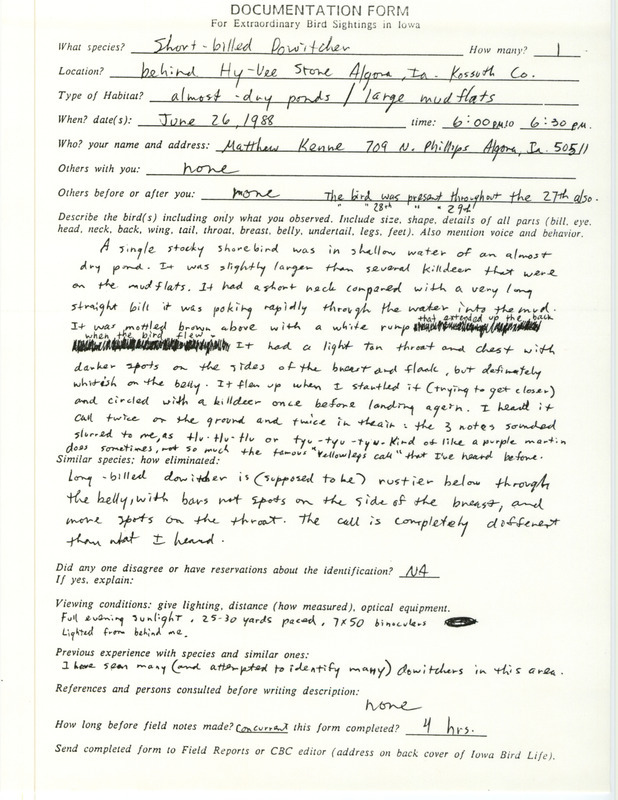 DOCUMENTATION FORM
For Extraordinary Bird Sightings in Iowa
What species? Short-billed Dowitcher How many? 1
Location? behind Hy-Vee Store Algona, Ia. Kossuth Co.
Type of Habitat? almost-dry ponds / large mudflats
When? date(s): June 26, 1988 time: 6:00 PM to 6:30 P.M.
Who? your name and address: Matthew Kenne 709 N. Phillips Algona, Ia. 50511
Others with you: none
Others before or after you: none The bird was present throughout the 27th also.
" " 28th " " 29th
Describe the bird(s) including only what you observed. Include size, shape, details of all parts (bill, eye,
head, neck, back, wing, tail, throat, breast, belly, undertail, legs, feet). Also mention voice and behavior.
A single stocky shorebird was in shallow water of an almost
dry pond. It was slightly larger than several killdeer that were
on the mudflats. It had a short neck compared with a very long
straight bill it was poking rapidly through the water into the mud.
It was mottled brown above with a white rump that extended up the back
when the bird flew. It had a light tan throat and chest with
darker spots on the sides of the breast and flank, but definately
whitish on the belly. It flew up when I startled it (trying to get closer)
and circled with a killdeer once before landing again. I heard it
call twice on the ground and twice in the air: the 3 notes sounded
slurred to me, as tlu-tlu-tlu or tyu-tyu-tyu. Kind of like a purple martin
does sometimes, not so much the famous "Yellowlegs call" that I've heard before.
Similar species; how eliminated:
Long-billed dowitcher is (supposed to be) rustier below through
the belly, with bars not spots on the side of the breast, and
more spots on the throat. The call is completely different
than what I heard.
Did any one disagree or have reservations about the identification? NA
If yes, explain:
Viewing conditions: give lighting, distance (how measured), optical equipment.
Full evening sunlight, 25-30 yards paced, 7x50 binoculars
Lighted from behind me.
Previous experience with species and similar ones:
I have seen many (and attempted to identify many) dowitchers in this area.
References and persons consulted before writing description:
none
How long before field notes made? concurrent this form completed? 4 hrs.
Send completed form to Field Reports or CBC editor (address on back cover of Iowa Bird Life).